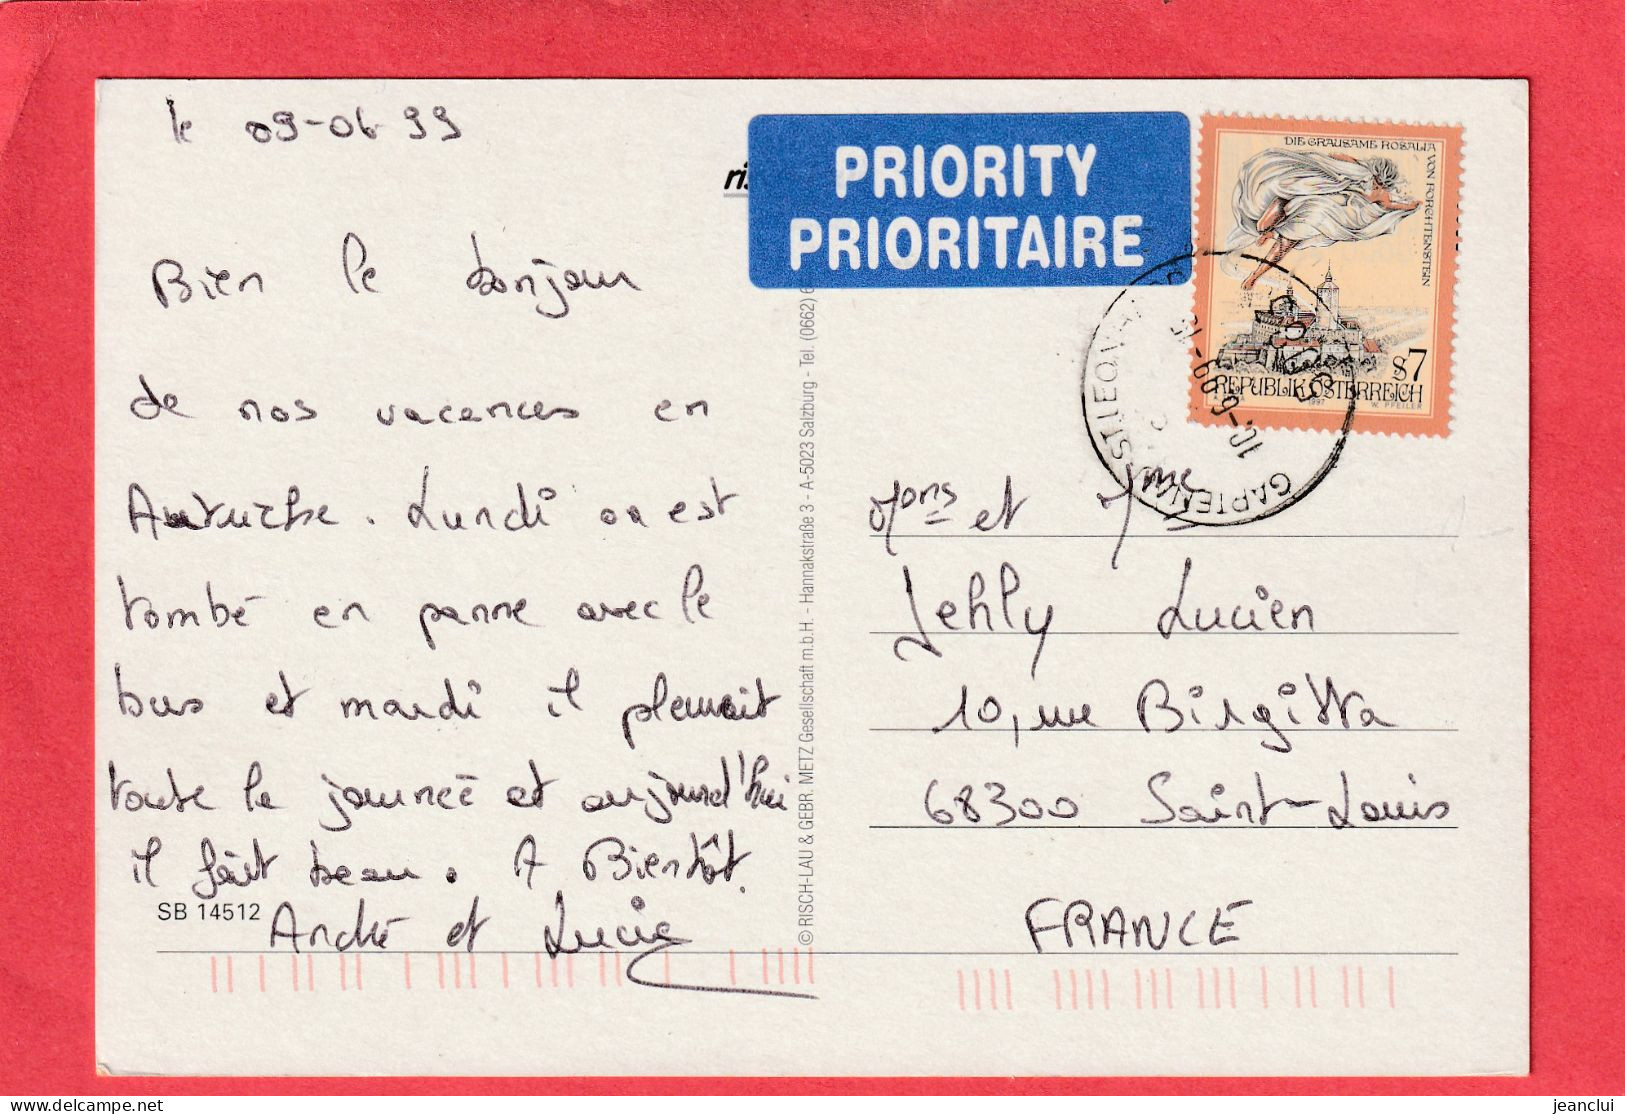 le 09-06-99
Bien le bonjour
de nos vacances en
Autriche. Lundi on est
tombé en panne avec le
bus et mardi il pleuvait
toute la journée et aujourd'hui
il fait beau. A Bientôt.
SB 14512
André et Lucie
© RISCH-LAU & GEBR. METZ Gesellschaft m.b.H. - Hannakstraße 3 - A-5023 Salzburg - Tel. (0662) 6
ris
PRIORITY
PRIORITAIRE
DIE GRAUSAME ROSALIA
VON FORCHTENSTEIN
S7
REPUBLIK ÖSTERREICH
1997 W. PFEILER
10.-6.99-15
Mons et Mme
Jehly Lucien
10, rue Birgitta
68300 Saint-Louis
FRANCE
jeanclui